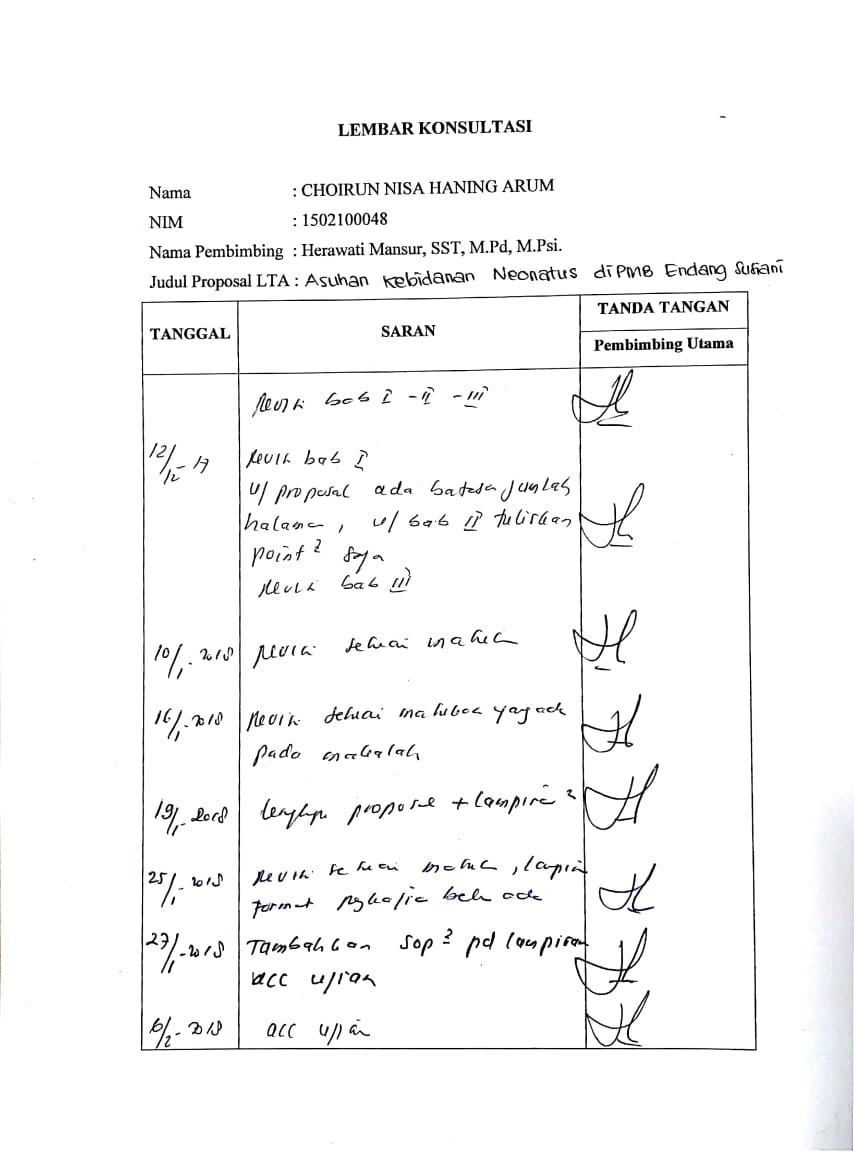 LEMBAR KONSULTASI
Nama : CHOIRUN NISA HANING ARUM
NIM : 1502100048
Nama Pembimbing : Herawati Mansur, SST, M.Pd, M.Psi.
Judul Proposal LTA : Asuhan Kebidanan Neonatus di PMB Endang Sufiani
TANGGAL SARAN TANDA TANGAN
Pembimbing Utama
Revisi bab I - II - III
12/12-17 Revisi bab I
u/ proposal ada batasan jumlah
halaman, u/ bab II tuliskan
point² saja
Revisi bab III
10/1-2018 Revisi sesuai
16/1-2018 Revisi sesuai yang ada
pada makalah
19/1-2018 lengkapi proposal + lampiran²
25/1-2018 Revisi sesuai
format
27/1-2018 Tambahkan sop² pd lampiran
acc ujian
6/2-2018 acc ujian